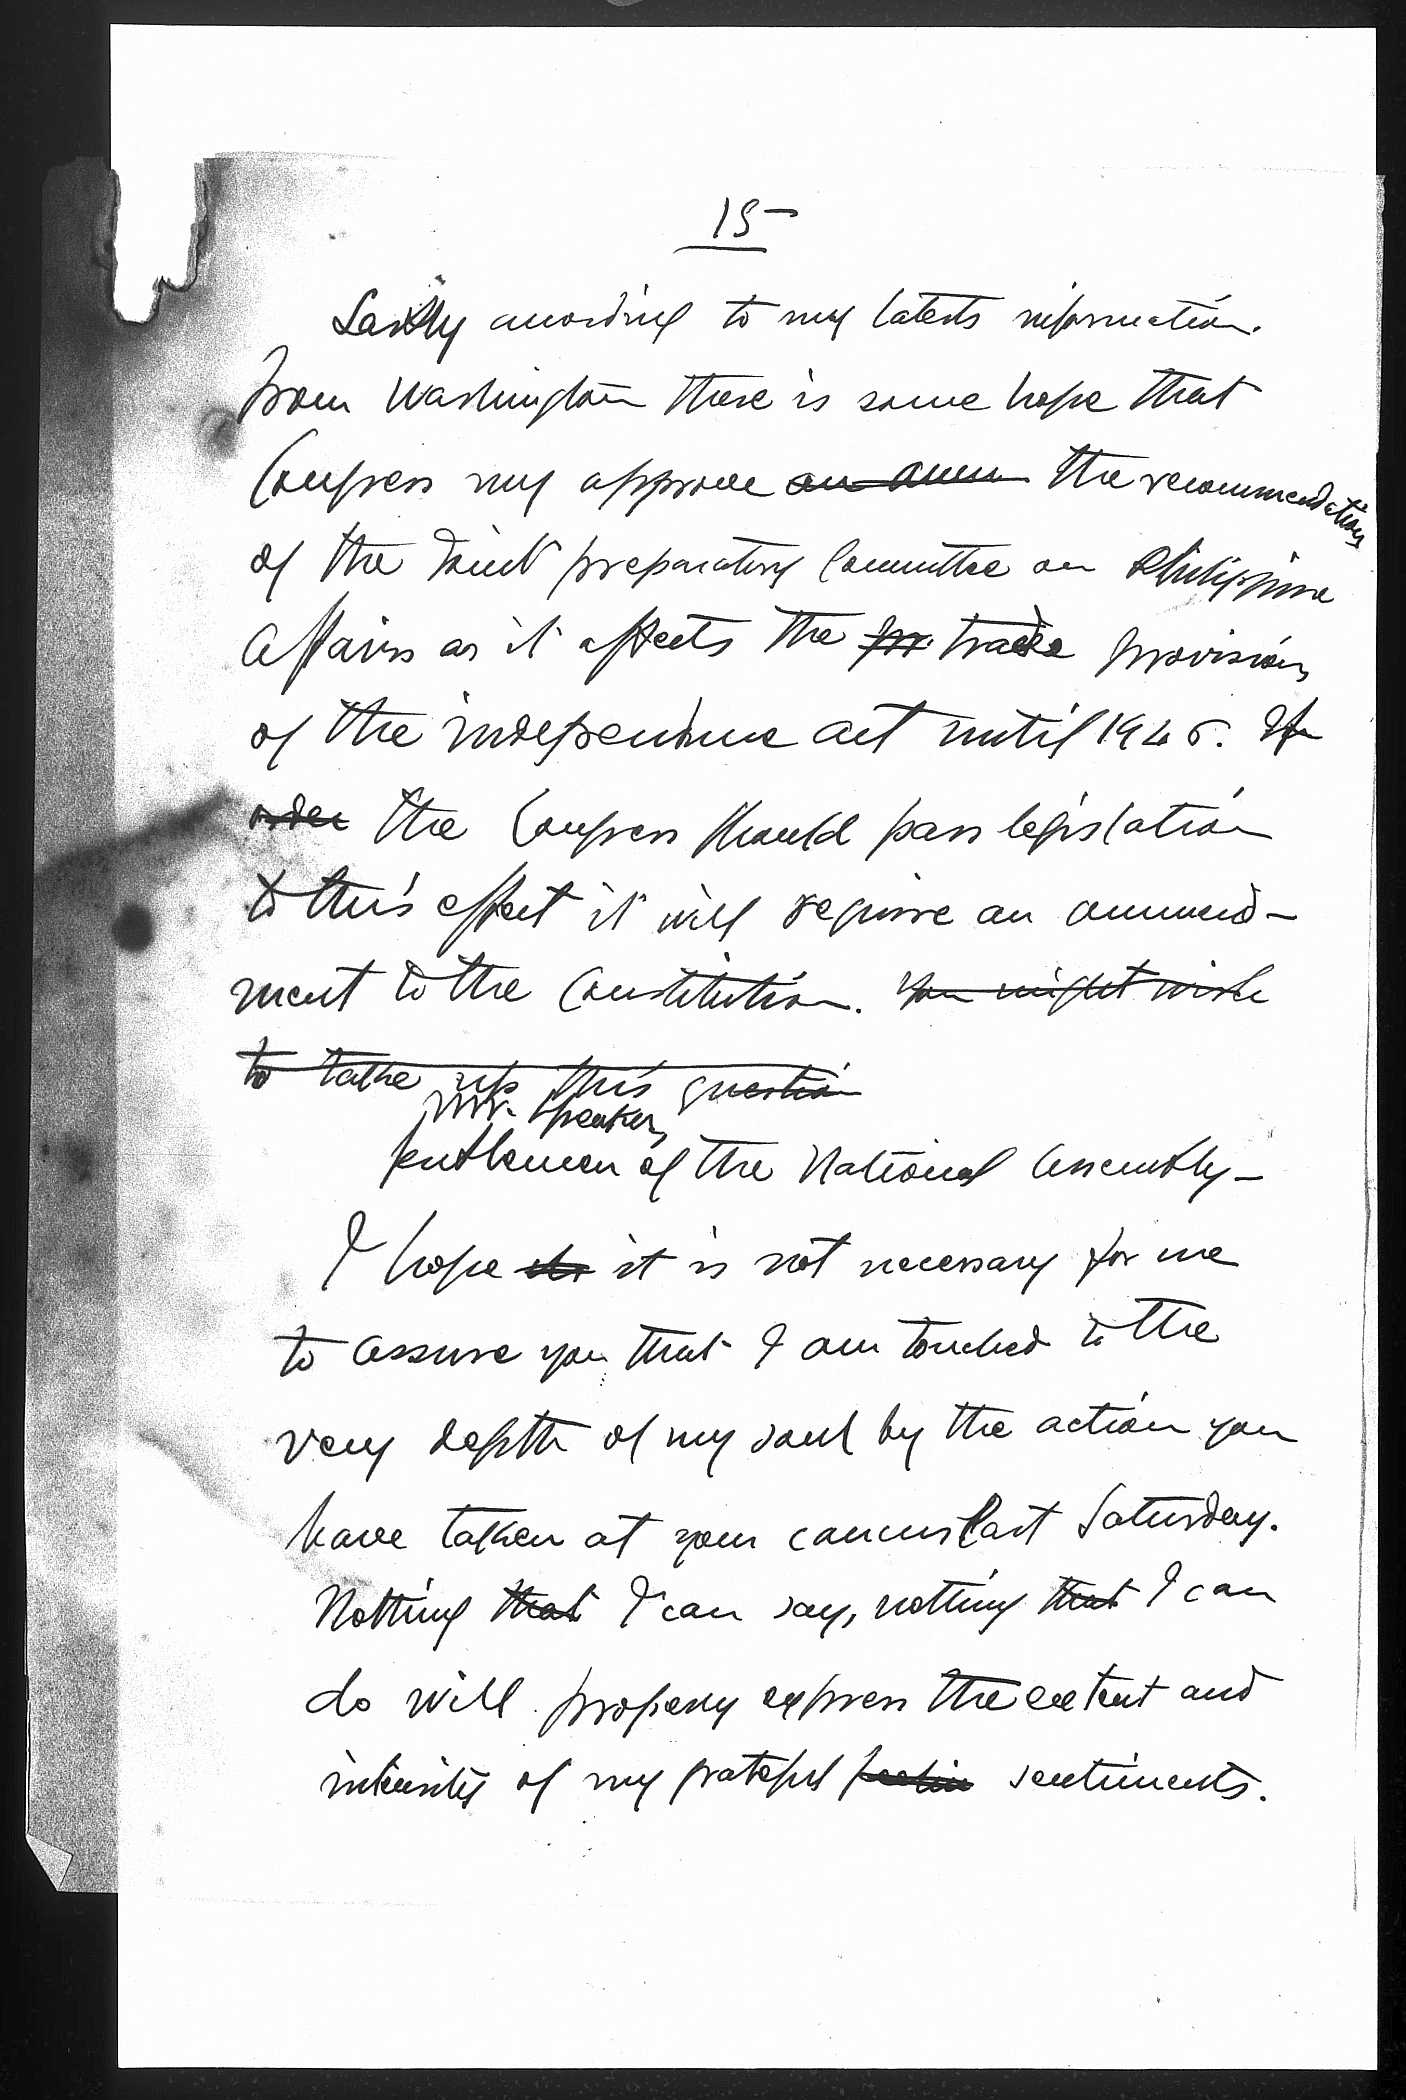 15
Lastly according to my latests information.
from Washington there is some hope that
Congress may approve an amen the recommendations
of the Joint preparatory Committee on Philippine
Affairs as it affects the pr. trade provisions
of the independence act until 1946. If
order the Congress should pass legislation
to this effect it will require an ammend-
ment to the Constitution. You might wish
to take up this question
Mr. Speaker,
Gentlemen of the National Assembly-
I hope it is not necessary for me
to assure you that I am touched to the
very depth of my soul by the action you
have taken at your caucus last Saturday.
Nothing that I can say, nothing that I can
do will propery express the extent and
intensity of my grateful feelin sentiments.